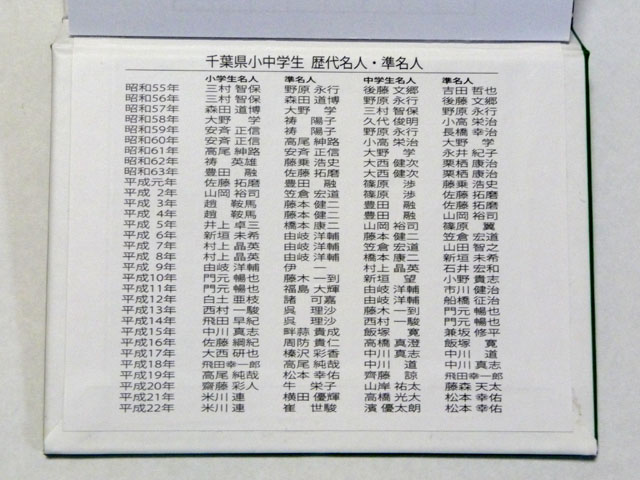 千葉県小中学生 歴代名人・準名人
小学生名人 準名人 中学生名人 準名人
昭和55年 三村 智保 野原 永行 後藤 文郷 吉田 哲也
昭和56年 三村 智保 森田 道博 野原 永行 後藤 文郷
昭和57年 森田 道博 大野 学 三村 智保 野原 永行
昭和58年 大野 学 祷 陽子 久代 俊明 小高 栄治
昭和59年 安斉 正信 祷 陽子 野原 永行 長橋 幸治
昭和60年 安斉 正信 高尾 紳路 小高 栄治 大野 学
昭和61年 高尾 紳路 安斉 正信 大野 学 永井 紀子
昭和62年 祷 英雄 藤乗 浩史 大西 健次 栗栖 康治
昭和63年 豊田 融 佐藤 拓磨 大西 健次 栗栖 康治
平成元年 佐藤 拓磨 豊田 融 篠原 渉 藤乗 浩史
平成 2年 山岡 裕司 笠倉 宏道 篠原 渉 佐藤 拓磨
平成 3年 趙 鞍馬 藤本 健二 豊田 融 佐藤 拓磨
平成 4年 趙 鞍馬 藤本 健二 豊田 融 山岡 裕司
平成 5年 井上 卓三 橋本 康二 山岡 裕司 篠原 翼
平成 6年 新垣 未希 由岐 洋輔 藤本 健二 笠倉 宏道
平成 7年 村上 晶英 由岐 洋輔 笠倉 宏道 山田 智之
平成 8年 村上 晶英 由岐 洋輔 橋本 康二 新垣 未希
平成 9年 由岐 洋輔 伊 一 村上 晶英 石井 宏和
平成10年 門元 暢也 藤木 一到 新垣 望 小野 貴志
平成11年 門元 暢也 福島 大輝 由岐 洋輔 市川 健治
平成12年 白土 亜枝 諸 可嘉 由岐 洋輔 船橋 征治
平成13年 西村 一駿 呉 理沙 藤木 一到 門元 暢也
平成14年 飛田 早紀 呉 理沙 西村 一駿 門元 暢也
平成15年 中川 真志 畔蒜 貴成 飯塚 寛 兼坂 修平
平成16年 佐藤 綱紀 周防 貴仁 高橋 真澄 飯塚 寛
平成17年 大西 研也 榛沢 彩香 中川 真志 中川 道
平成18年 飛田幸一郎 高尾 純哉 中川 道 中川 真志
平成19年 高尾 純哉 松本 幸佑 齊藤 諒 飛田幸一郎
平成20年 齋藤 彩人 牛 栄子 山岸 祐太 藤森 天太
平成21年 米川 連 横田 優輝 高橋 光大 松本 幸佑
平成22年 米川 連 崔 世駿 濱 優太朗 松本 幸佑